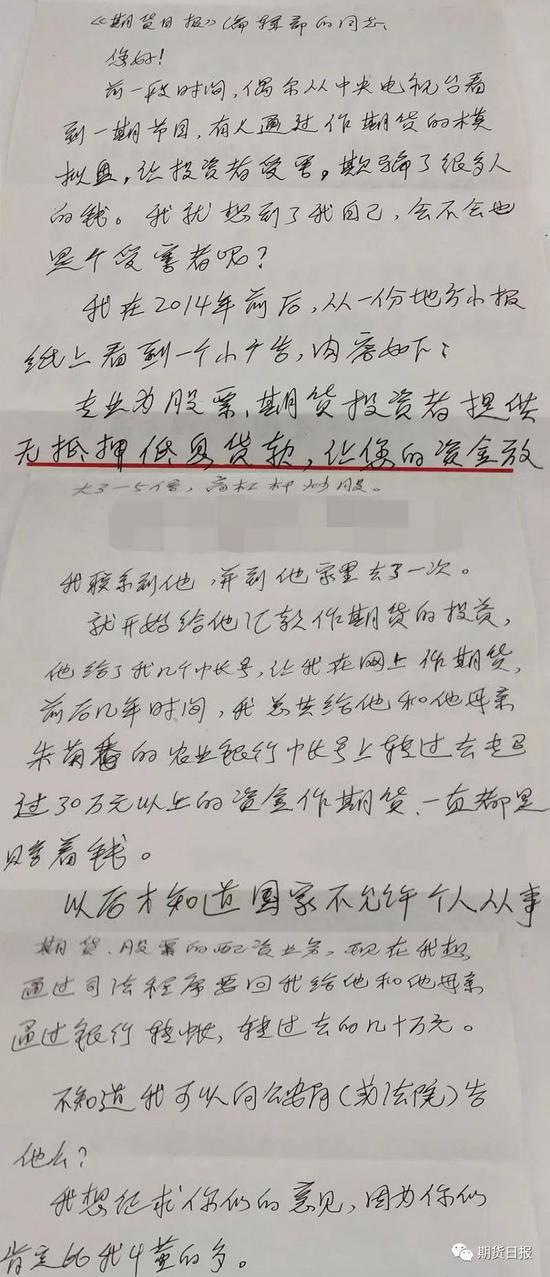 《期货日报》编辑部的同志、
您好！
前一段时间，偶尔从中央电视台看
到一期节目，有人通过作期货的模
拟盘，让投资者受害，欺骗了很多人
的钱。我就想到了我自己，会不会也
是个受害者呢？
我在2014年前后，从一份地方小报
纸上看到一个小广告，内容如下：
专业为股票、期货投资者提供
无抵押低息贷款，让您的资金放
大3-5倍，高杠杆炒股。
我联系到他，并到他家里去了一次。
就开始给他汇款作期货的投资，
他给了我几个帐号，让我在网上作期货，
前后几年时间，我总共给他和他母亲
朱菊香的农业银行帐号上转过去超
过30万元以上的资金作期货、一直都是
赔着钱。
以后才知道国家不允许个人从事
期货、股票的配资业务，现在我想
通过司法程序要回我给他和他母亲
通过银行转帐，转过去的几十万元。
不知道我可以向公安局（或法院）告
他么？
我想征求你们的意见，因为你们
肯定比我懂的多。
期货日报